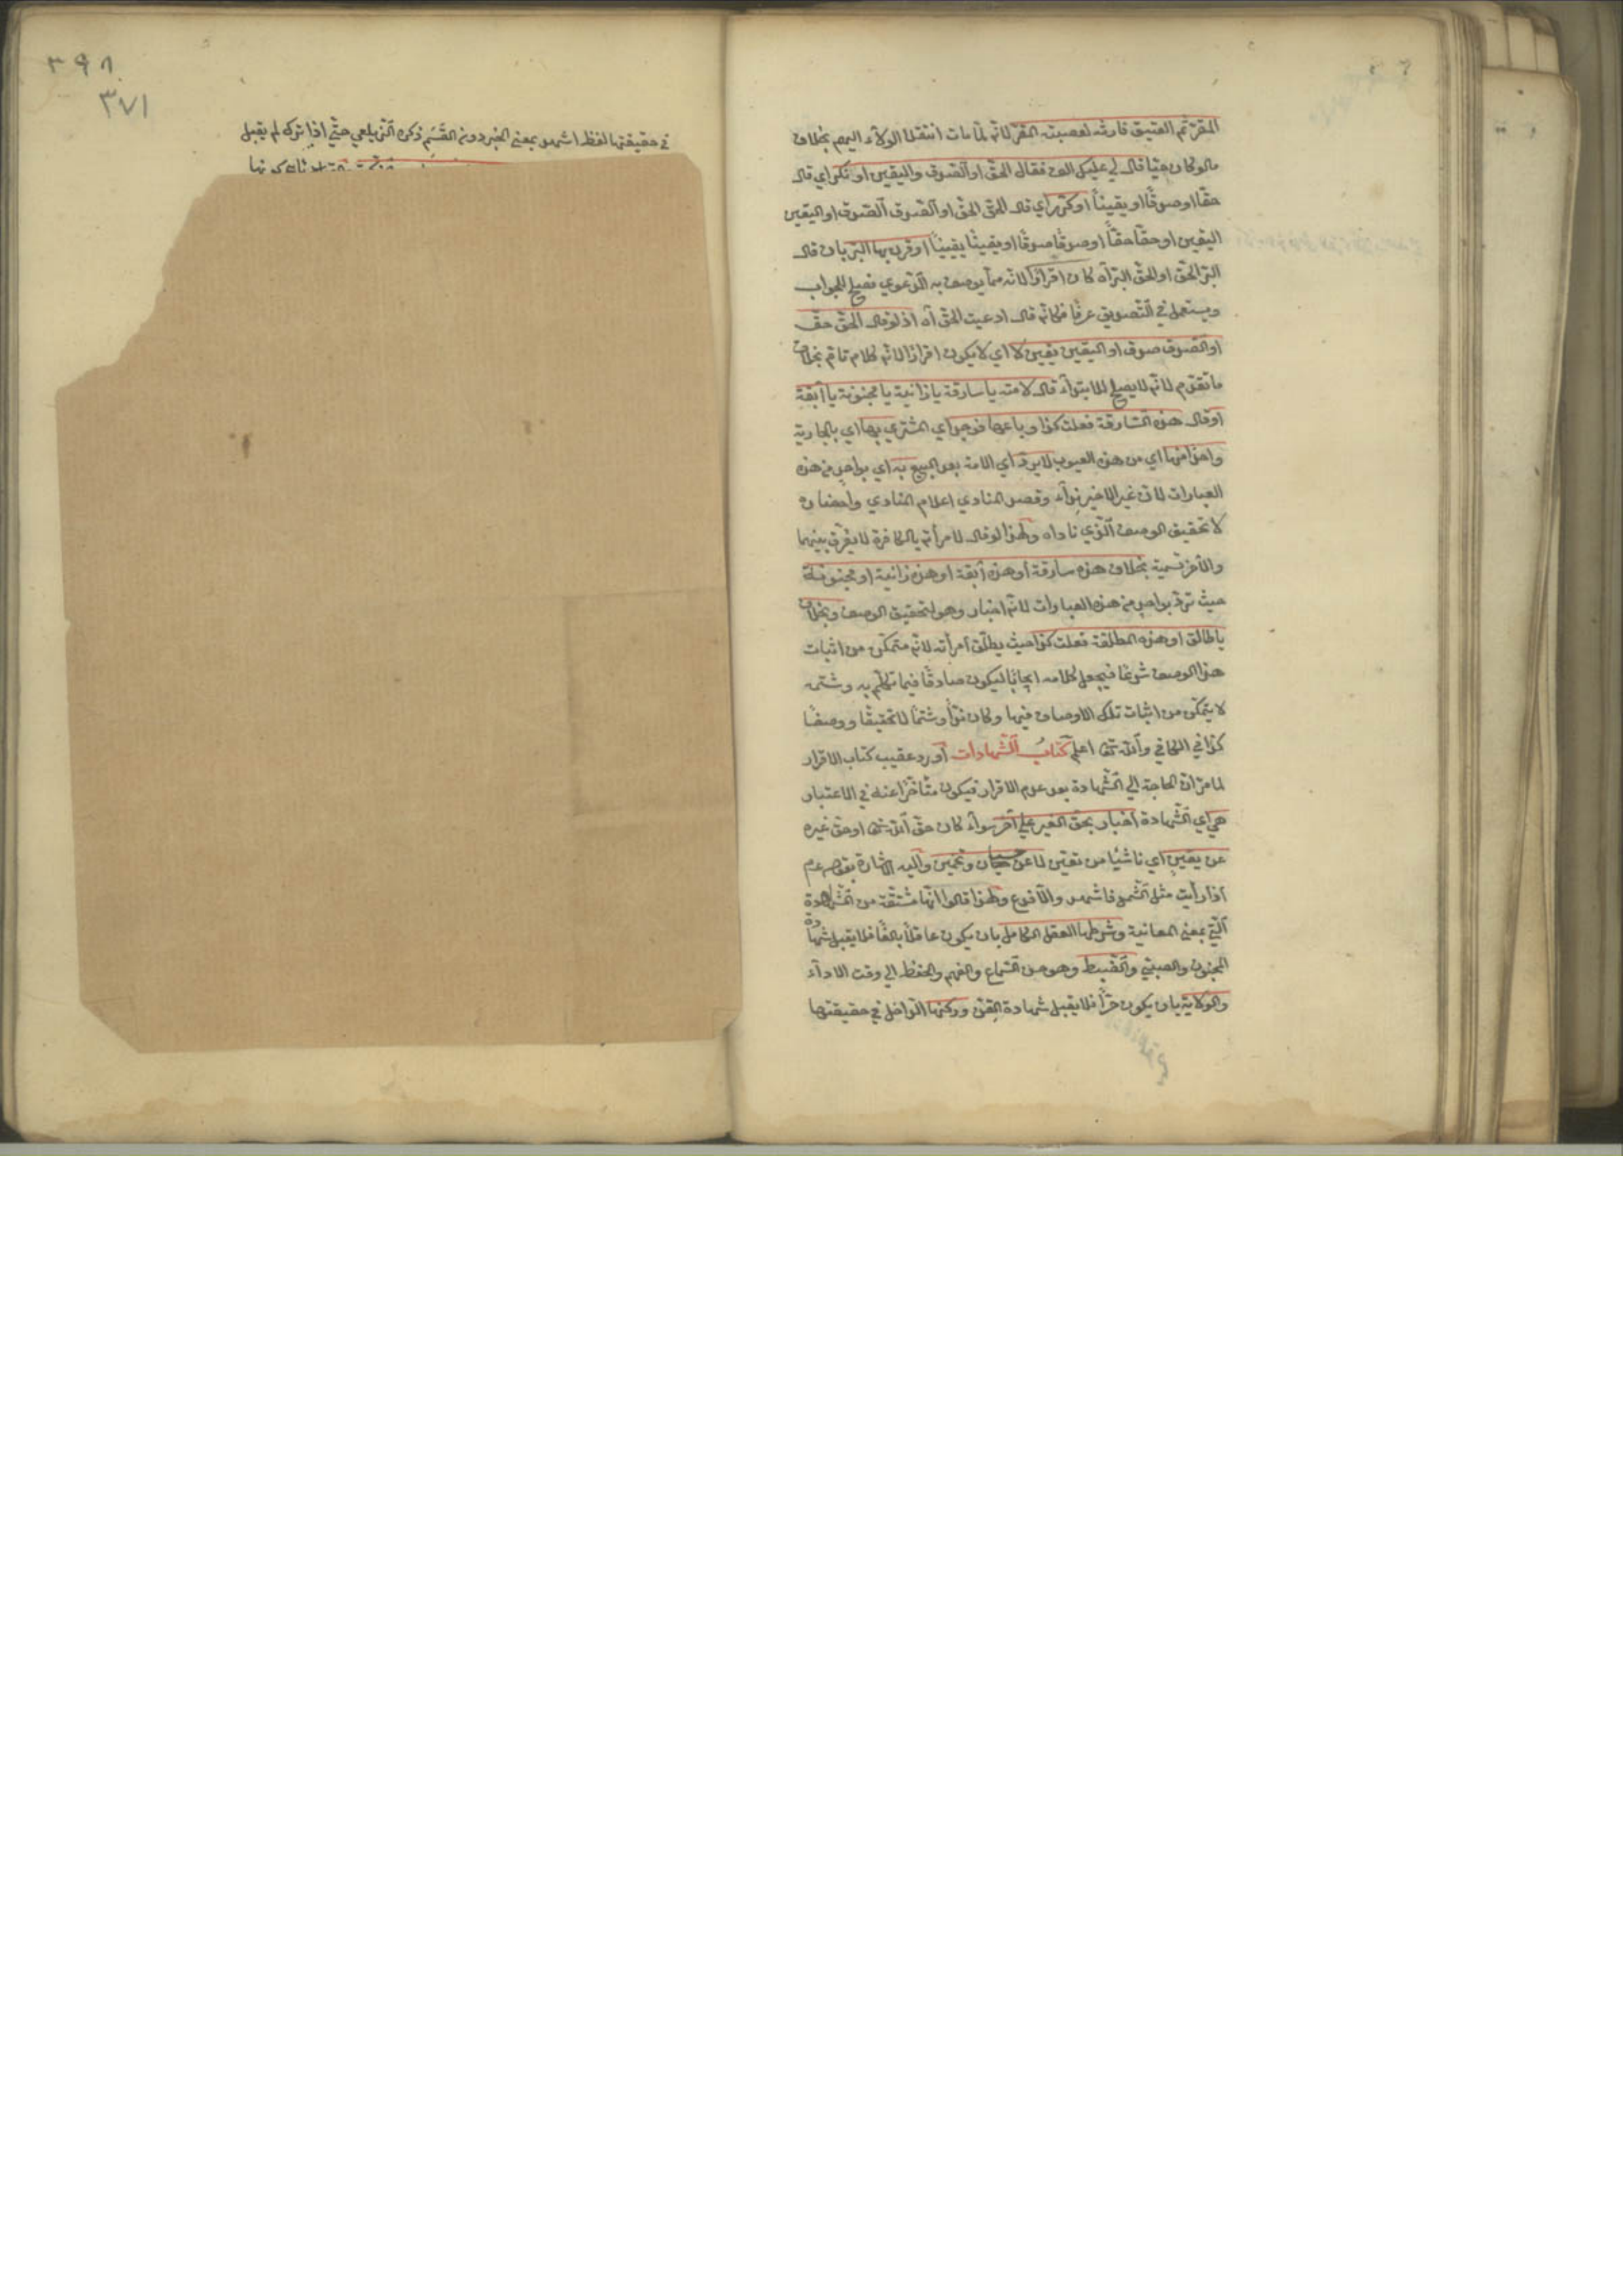 المقر ثم العتيق فارثه لعصبة المقر لانه لما مات انتقل الولاء اليهم بخلاف
مالو كان حيا قال لي عليك الف فقال الحق او الصدق واليقين او نكر اي قال
حقا او صدقا او يقينا او كرر اي قال الحق الحق او الصدق الصدق او اليقين
اليقين او حقا حقا او صدقا صدقا او يقينا يقينا او قرن بها البر بان قال
البر الحق او الحق البر اه كان اقرارا لانه مما يوصف به الدعوي فصلح للجواب
ويستعمل في التصديق عرفا فكانه قال ادعيت الحق اه اذ لو قال الحق حق
او الصدق صدق او اليقين يقين لا اي لا يكون اقرارا لانه كلام تام بخلاف
ما تقدم لانه لا يصلح للابتداء قال لامته يا سارقة يا زانية يا مجنونة يا آبقة
او قال هذه السارقة فعلت كذا وباعها فوجد اي المشتري بها اي بالجارية
واحدا منها اي من هذه العيوب لا يرد اي الامة بعد البيع به اي بواحد من هذه
العبارات لان غير الاخير نداء وقصد المنادي اعلام المنادي واحضاره
لا تحقيق الوصف الذي ناداه ولهذا لو قال لامرأته يا كافرة لا يفرق بينهما
والاخر شتمية بخلاف هذه سارقة او هذه آبقة او هذه زانية او مجنونة
حيث ترد بواحد من هذه العبارات لانه اخبار وهو لتحقيق الوصف وبخلاف
يا طالق او هذه المطلقة فعلت كذا حيث يطلق امرأته لانه متمكن من اثبات
هذا الوصف شرعا فيجعل كلامه ايجابا ليكون صادقا فيما تكلم به وشتمه
لا يتمكن من اثبات تلك الاوصاف فيها وكان نداء وشتما لا تحقيقا ووصفا
كذا في الكافي والله تعا اعلم كتاب الشهادات أورد عقيب كتاب الاقرار
لما مر ان الحاجة الي الشهادة بعد عدم الاقرار فيكون متأخرا عنه في الاعتبار
هي اي الشهادة اخبار بحق الغير علي آخر سواء كان حق الله تعا او حق غيره
عن يقين اي ناشئا من تعين لا عن حسبان وتخمين واليه الاشارة بقوله عم
اذا رأيت مثل الشمس فاشهد والا فدع ولهذا قالوا انها مشتقة من المشاهدة
التي بمعني المعاينة وشرطها العقل الكامل بان يكون عاقلا بالغا فلا يقبل شهادة
المجنون والصبي والضبط وهو حسن السماع والفهم والحفظ الي وقت الاداء
والولاية بان يكون حرا فلا يقبل شهادة القن وركنها الداخل في حقيقتها
٣٩٨
٣٧١
في حقيقتها لفظ اشهد بمعني الخبر دون القسم ذكره الزيلعي حتي اذا تركه لم يقبل